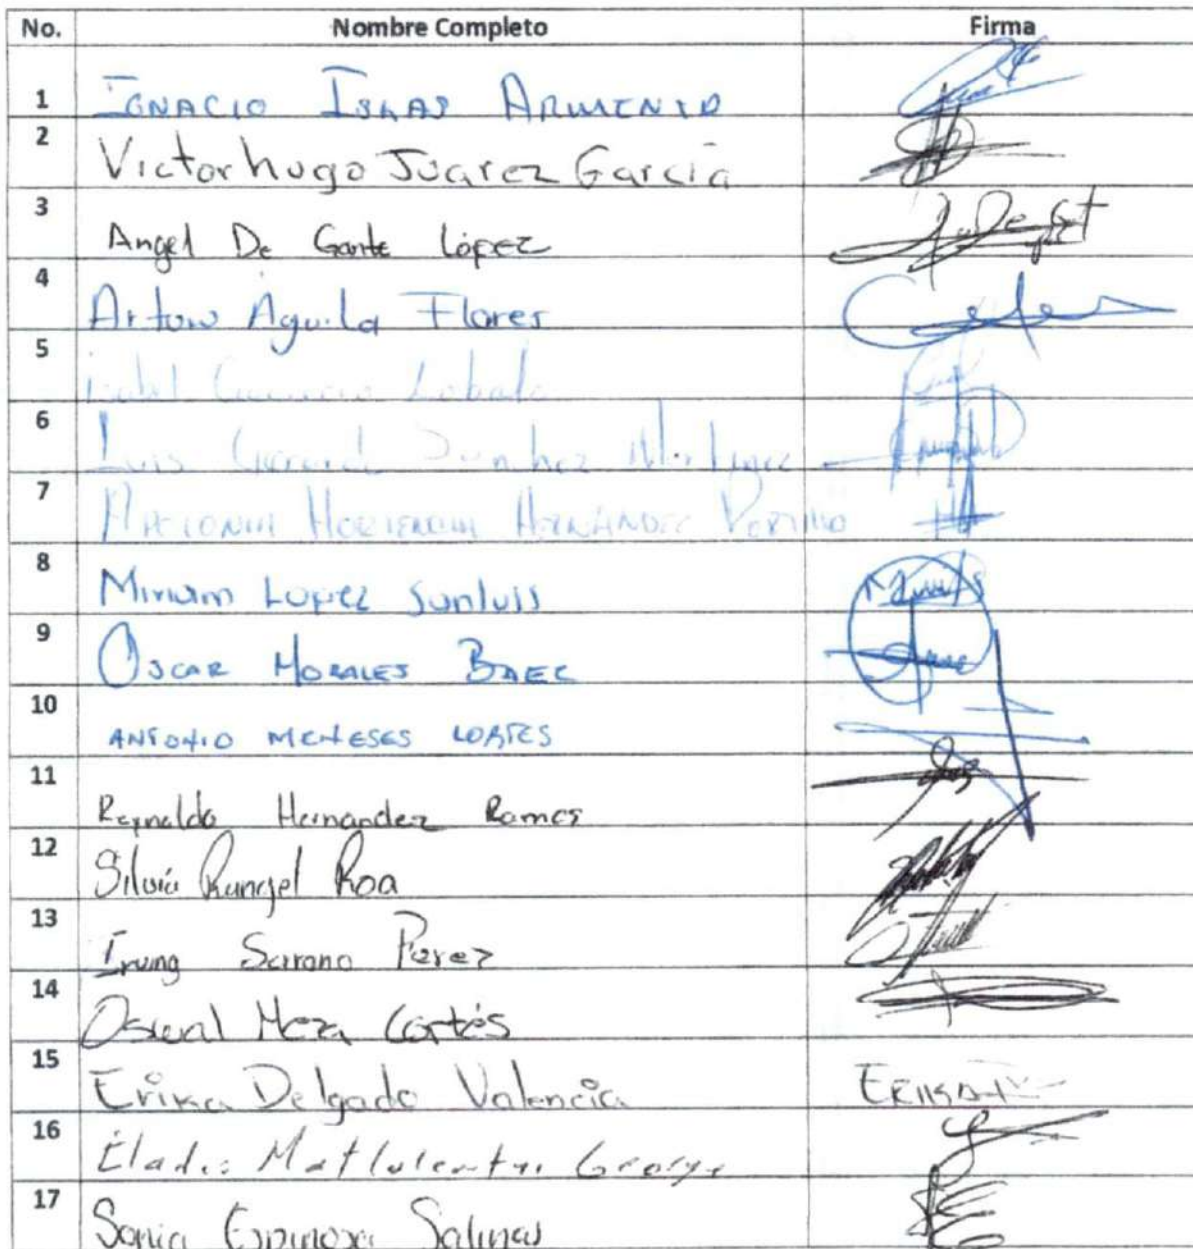 No. Nombre Completo Firma
1 IGNACIO ISLAS ARMENTA
2 Victor hugo Juarez Garcia
3 Angel De Gante López
4 Arturo Aguila Flores
5 Lobato
6 Luis Gerardo Sanchez Martinez
7 HERNANDEZ PORTILLO
8 Miriam Lopez Sanluis
9 OSCAR MORALES BAEZ
10 ANTONIO MENESES CORTES
11 Reynaldo Hernandez Ramos
12 Silvia Rangel Roa
13 Irving Serrano Perez
14 Oswal Meza Cortés
15 Erika Delgado Valencia ERIKA
16 Eladio
17 Sonia Espinosa Salinas